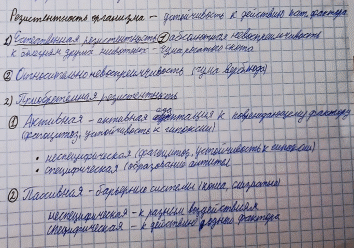 Резистентность организма – устойчивость к действию пат. фактора
1) Естественная резистентность ① Абсолютная невосприимчивость
к болезням других животных – чума рогатого скота
② Относительно невосприимчивость (чума верблюда)
2) Приобретенная резистентность
① Активная – активная адаптация к повреждающему фактору
(фагоцитоз, устойчивость к гипоксии)
• неспецифическая (фагоцитоз, устойчивость к гипоксии)
• специфическая (образование антител)
② Пассивная – барьерные системы (кожа, слизистые)
неспецифическая – к разным воздействиям
специфическая – к действию фактора